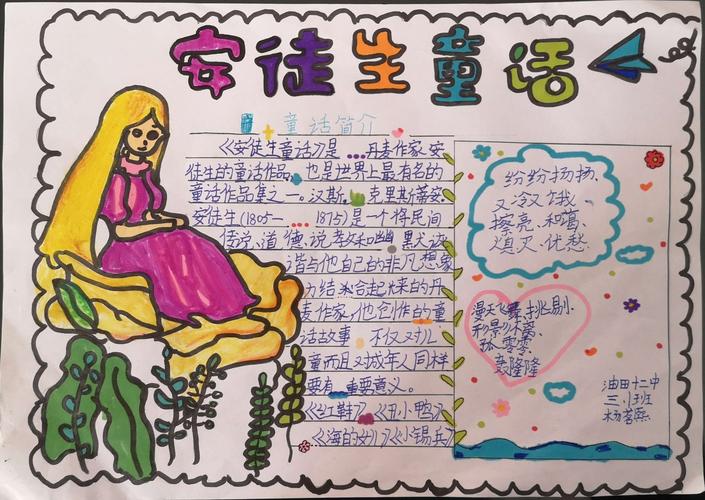 安徒生童话
童话简介
《安徒生童话》是丹麦作家安
徒生的童话作品,也是世界上最有名的
童话作品集之一。汉斯.克里斯蒂安.
安徒生(1805—1875)是一个将民间
传说、道德说教和幽默诙
谐与他自己的非凡想象
力结合起来的丹
麦作家,他创作的童
话故事 不仅对儿
童而且对成年人同样
要有重要意义。
《红鞋》《丑小鸭》
《海的女儿》《小锡兵》
纷纷扬扬、
又冷又饿、
擦亮、和蔼、
填灭、忧愁
漫天飞舞、挑剔、
孤零零
轰隆隆
油田十二中
三.班